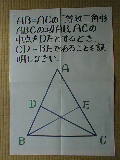 AB=ACの二等辺三角形
ABCの辺AB,ACの
中点をDEとするとき、
CD=BEであることを証
明しなさい
A
D
E
B
C